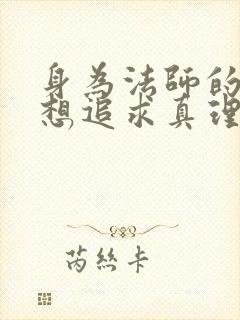 身為法師的
想追求真理
芮絲卡